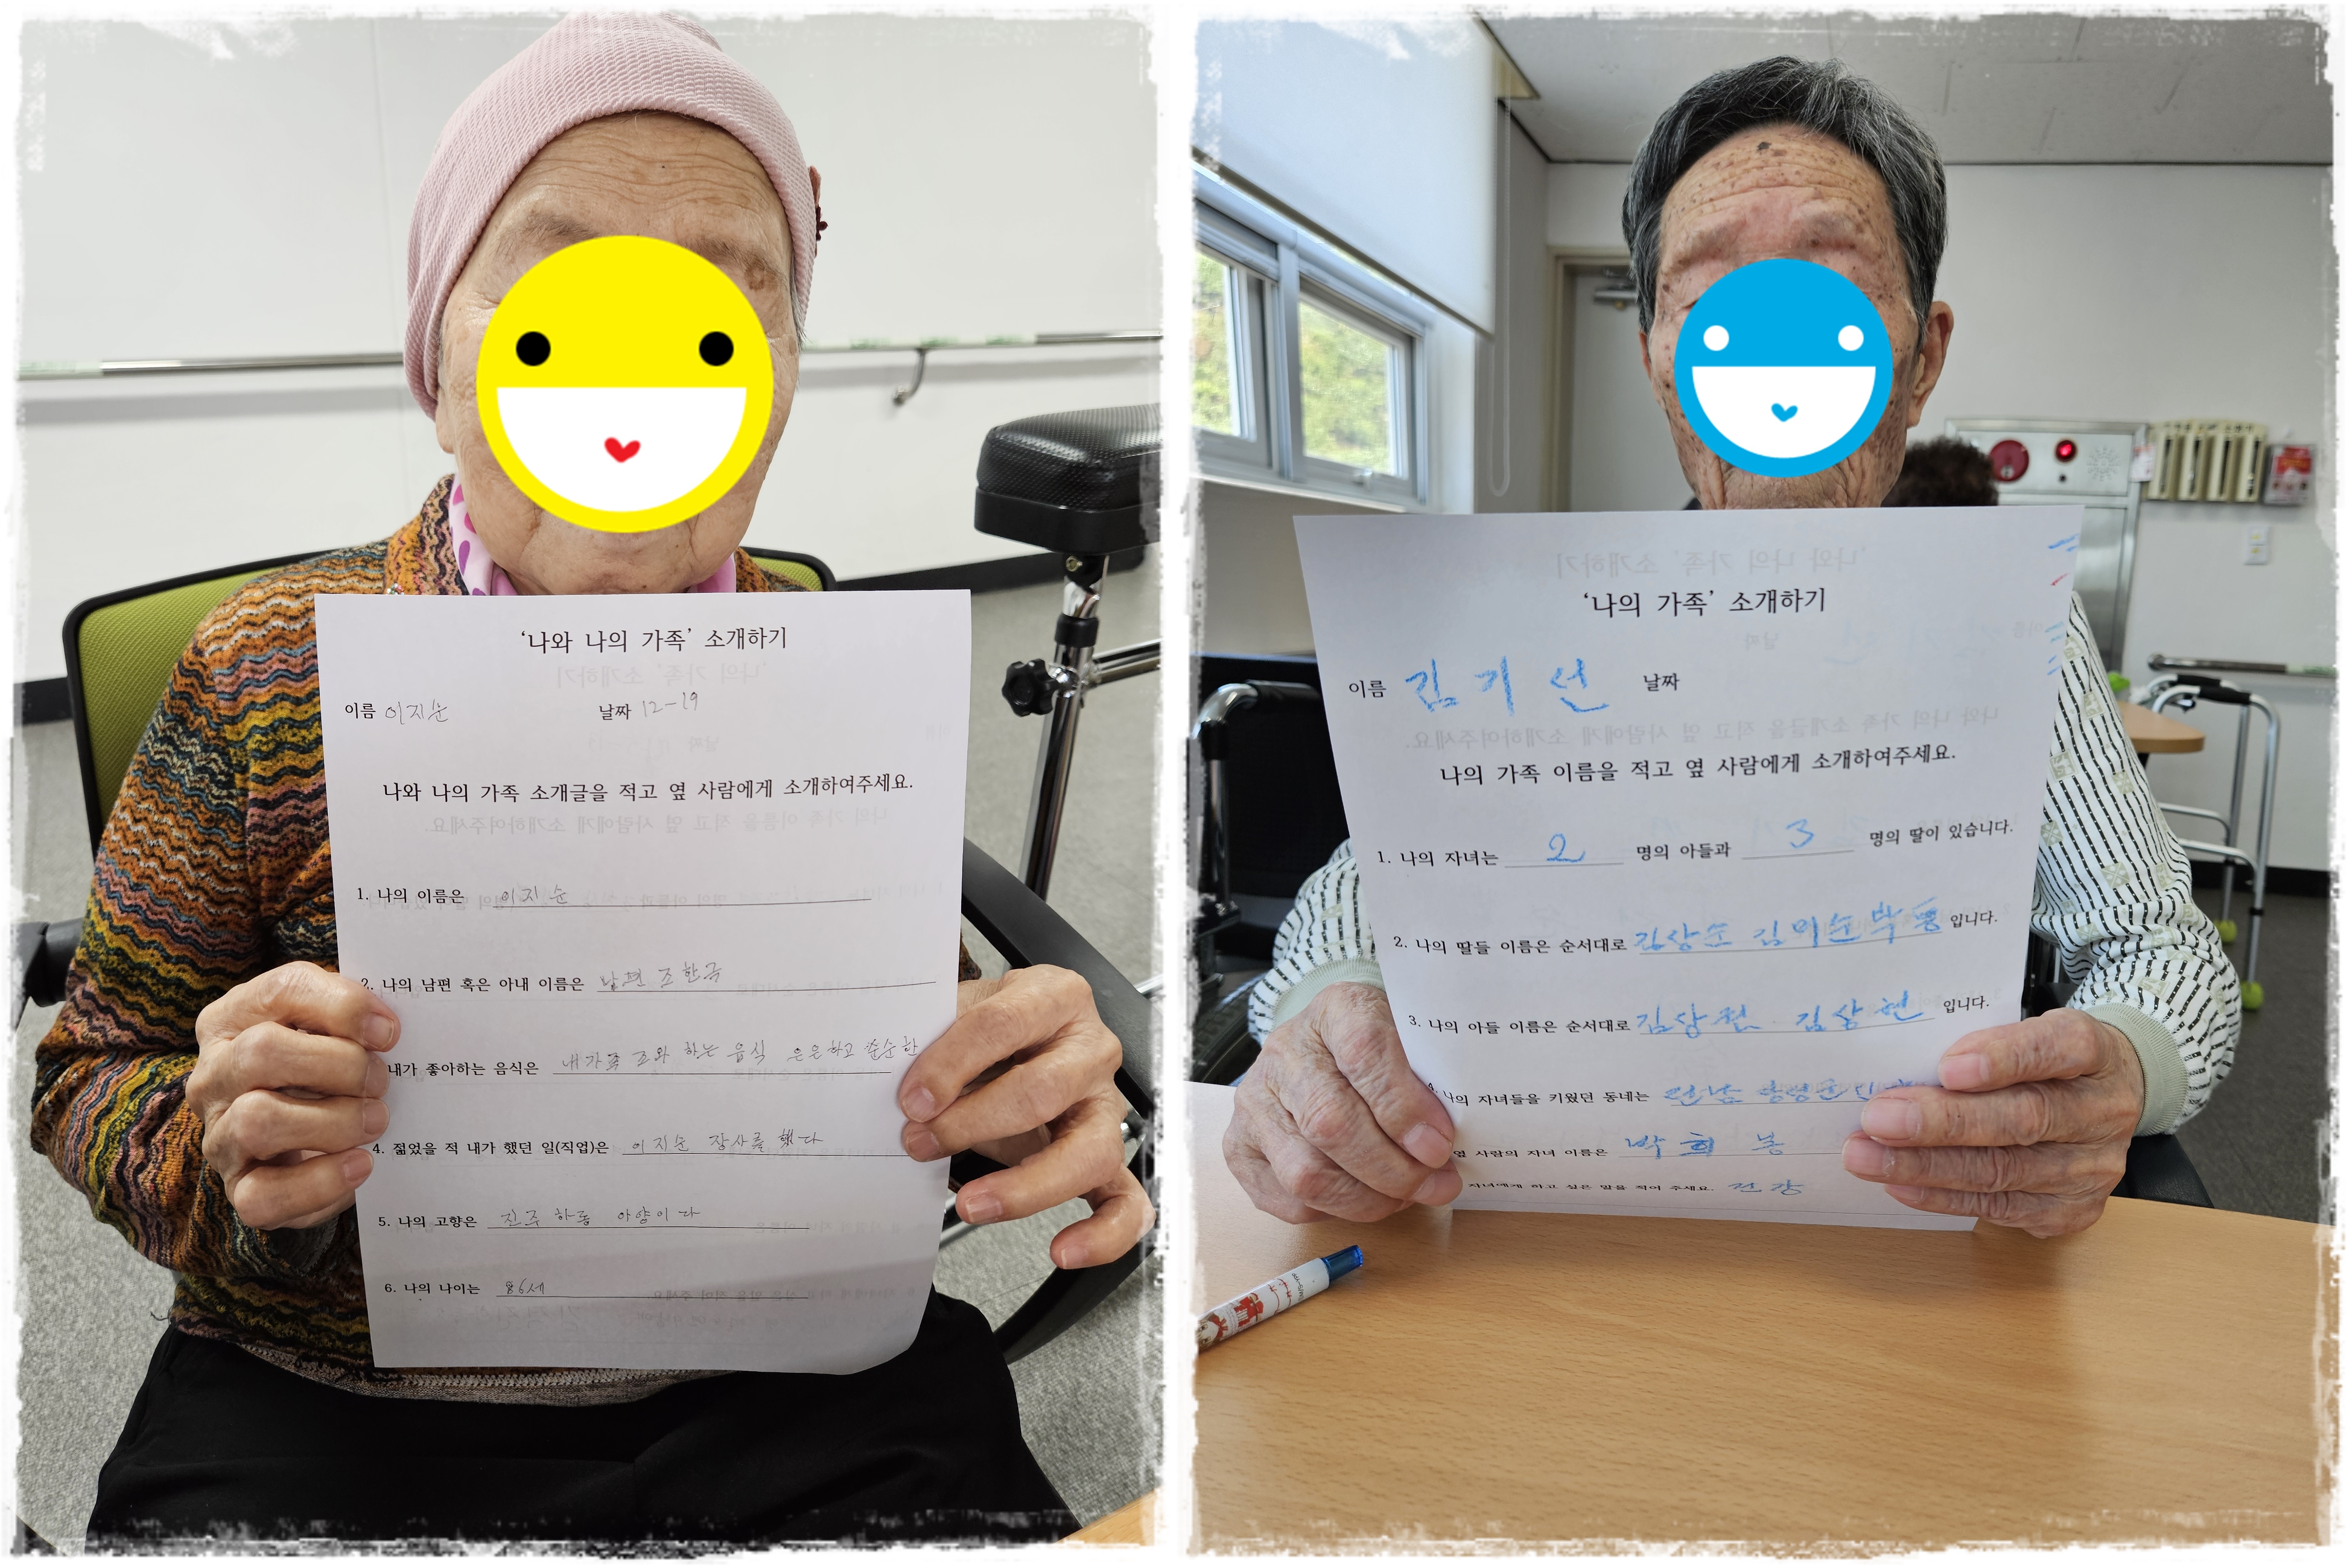 '나와 나의 가족' 소개하기
이름 이지순 날짜 12-19
나와 나의 가족 소개글을 적고 옆 사람에게 소개하여주세요.
1. 나의 이름은 이지순
2. 나의 남편 혹은 아내 이름은 남편 조한국
내가 좋아하는 음식은 내가족 조와 하는 음식 은은하고 순한
4. 젊었을 적 내가 했던 일(직업)은 이지순 장사를 했다
5. 나의 고향은 진주 하동 아양이다
6. 나의 나이는 86세
'나의 가족' 소개하기
이름 김기선 날짜
나의 가족 이름을 적고 옆 사람에게 소개하여주세요.
1. 나의 자녀는 2 명의 아들과 3 명의 딸이 있습니다.
2. 나의 딸들 이름은 순서대로 김상순 김미순 입니다.
3. 나의 아들 이름은 순서대로 김상현 입니다.
나의 자녀들을 키웠던 동네는
옆 사람의 자녀 이름은 박희봉
자녀에게 하고 싶은 말을 적어 주세요. 건강